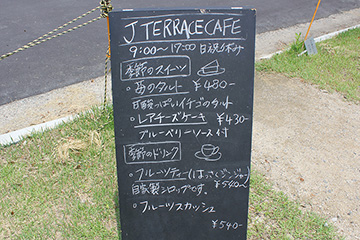 J TERRACE CAFE
9:00~17:00 日祝休み
季節のスイーツ
・苺のタルト ¥480-
甘酸っぱいイチゴのタルト
・レアチーズケーキ ¥430-
ブルーベリーソース付
季節のドリンク
・フルーツティー(はっさくジンジャー)
自家製シロップです。 ¥540-
・フルーツスカッシュ
¥540-